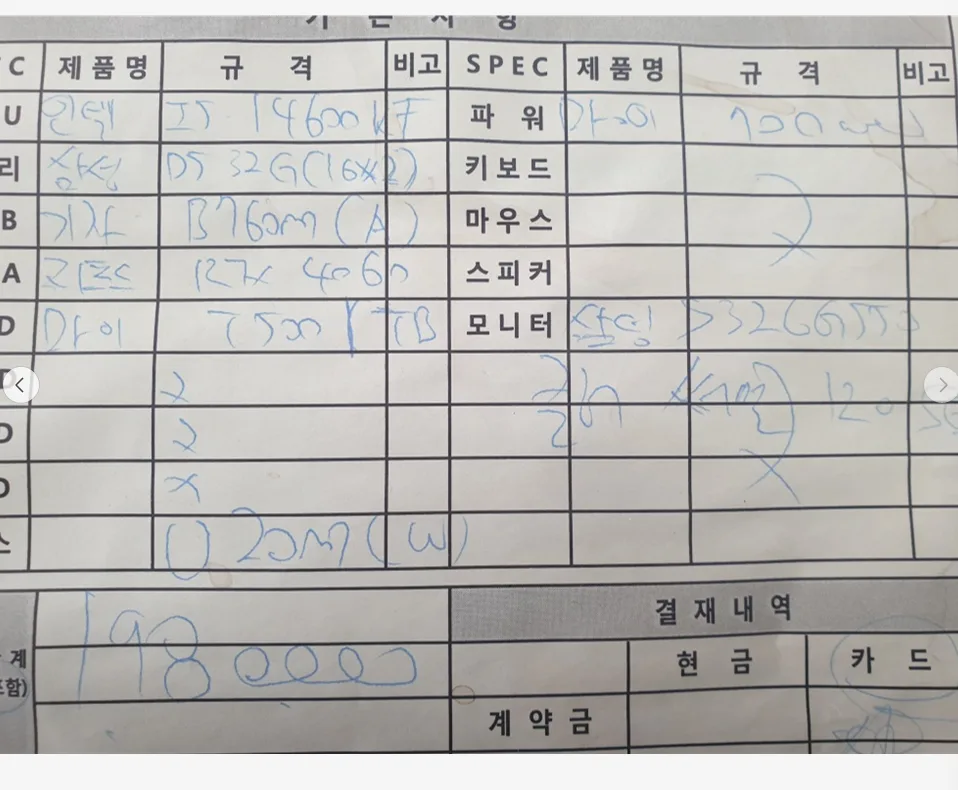 기 본 사 항
C 제품명 규 격 비고 SPEC 제품명 규 격 비고
U 인텔 I5 14600KF 파 워 마이 700
리 삼성 D5 32G(16x2) 키보드
B 기가 B760m (A) 마우스 X
A RTX 4060 스피커
D 마이 T500 1TB 모니터 삼성 S32CG550
X
D X 120
D X X
스 U20m (W)
결재내역
계 1980000 현 금 카 드
포함)
계약금